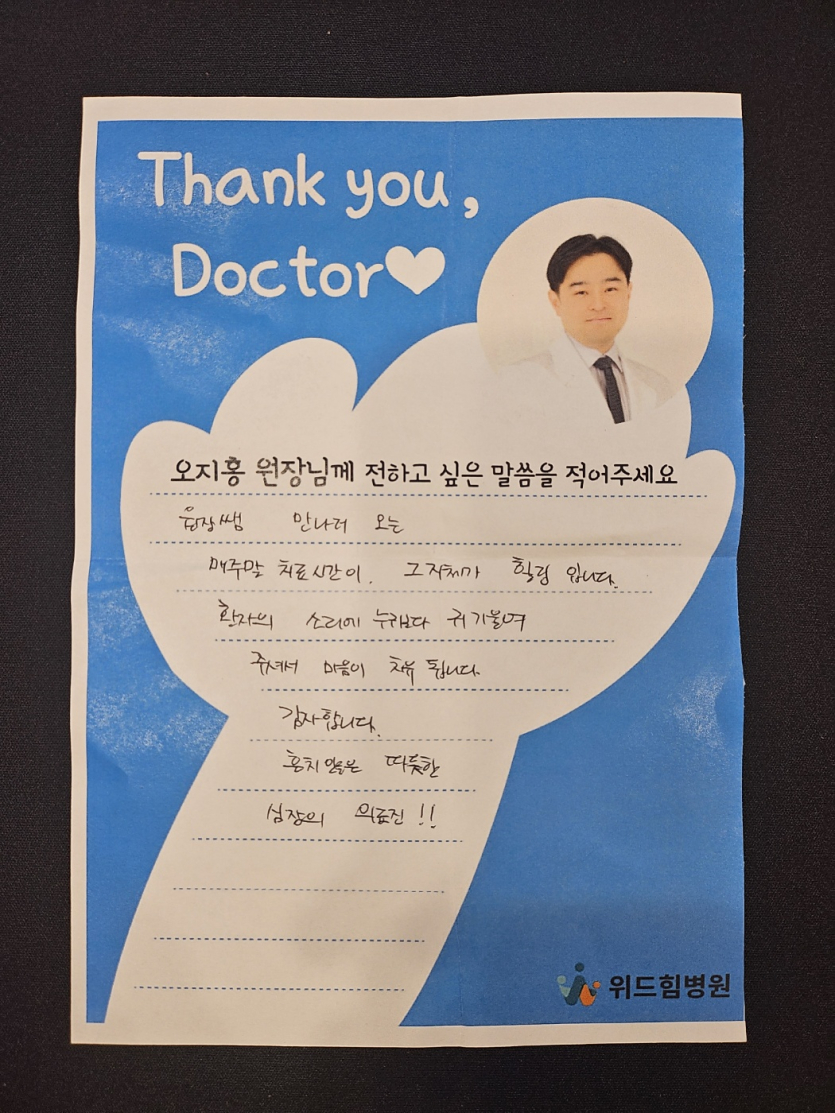 Thank you,
Doctor♥
오지홍 원장님께 전하고 싶은 말씀을 적어주세요
원장쌤 만나러 오는
매주말 치료시간이. 그자체가 힐링 입니다.
환자의 소리에 누구보다 귀 기울여
주셔서 마음이 치유 됩니다.
감사합니다.
흔치 않은 따듯한
심장의 의료진 !!
위드힘병원